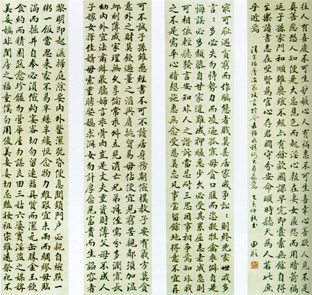 黎明即起灑掃庭除要內外整潔既昏便息關鎖門戶必親自檢點一
粥一飯當思來處不易半絲半縷恒念物力維艱宜未雨而綢繆毋臨
渴而掘井自奉必須儉約宴客切勿留連器具質而潔瓦缶勝金玉飲
食約而精園蔬愈珍饈勿營華屋勿謀良田三姑六婆實淫盜之媒婢
美妾嬌非閨房之福童僕勿用俊美妻妾切忌艷妝祖宗雖遠祭祀不
可不誠子孫雖愚經書不可不讀居身務期儉樸教子要有義方莫貪
意外之財莫飲過量之酒與肩挑貿易毋佔便宜見貧苦親鄰須加溫
卹刻薄成家理無久享倫常乖舛立見消亡兄弟叔侄需分多潤寡長
幼內外宜法肅辭嚴聽婦言乖骨肉豈是丈夫重資財薄父母不成人
子嫁女擇佳婿毋索重聘娶媳求淑女勿計厚奩見富貴而生諂容者
最可恥遇貧窮而作驕態者賤莫甚居家戒爭訟訟則終凶處世戒多
言言多必失毋恃勢力而凌逼孤寡毋貪口腹而恣殺牲禽乖僻自是
悔誤必多頹惰自甘家道難成狎昵惡少久必受其累屈志老成急則
可相依輕聽發言安知非人之譖愬當忍耐三思因事相爭焉知非我
之不是需平心暗想施惠無念受恩莫忘凡事當留餘地得意不宜再
往人有喜慶不可生妒忌心人有禍患不可生喜幸心善欲人見不是真
善惡恐人知便是大惡見色而起淫心報在妻女匿怨而用暗箭禍
延子孫家門和順雖饔飧不繼亦有餘歡國課早完即囊橐無餘自
得至樂讀書志在聖賢為官心存君國守分安命順時聽天為人若此庶
乎近焉